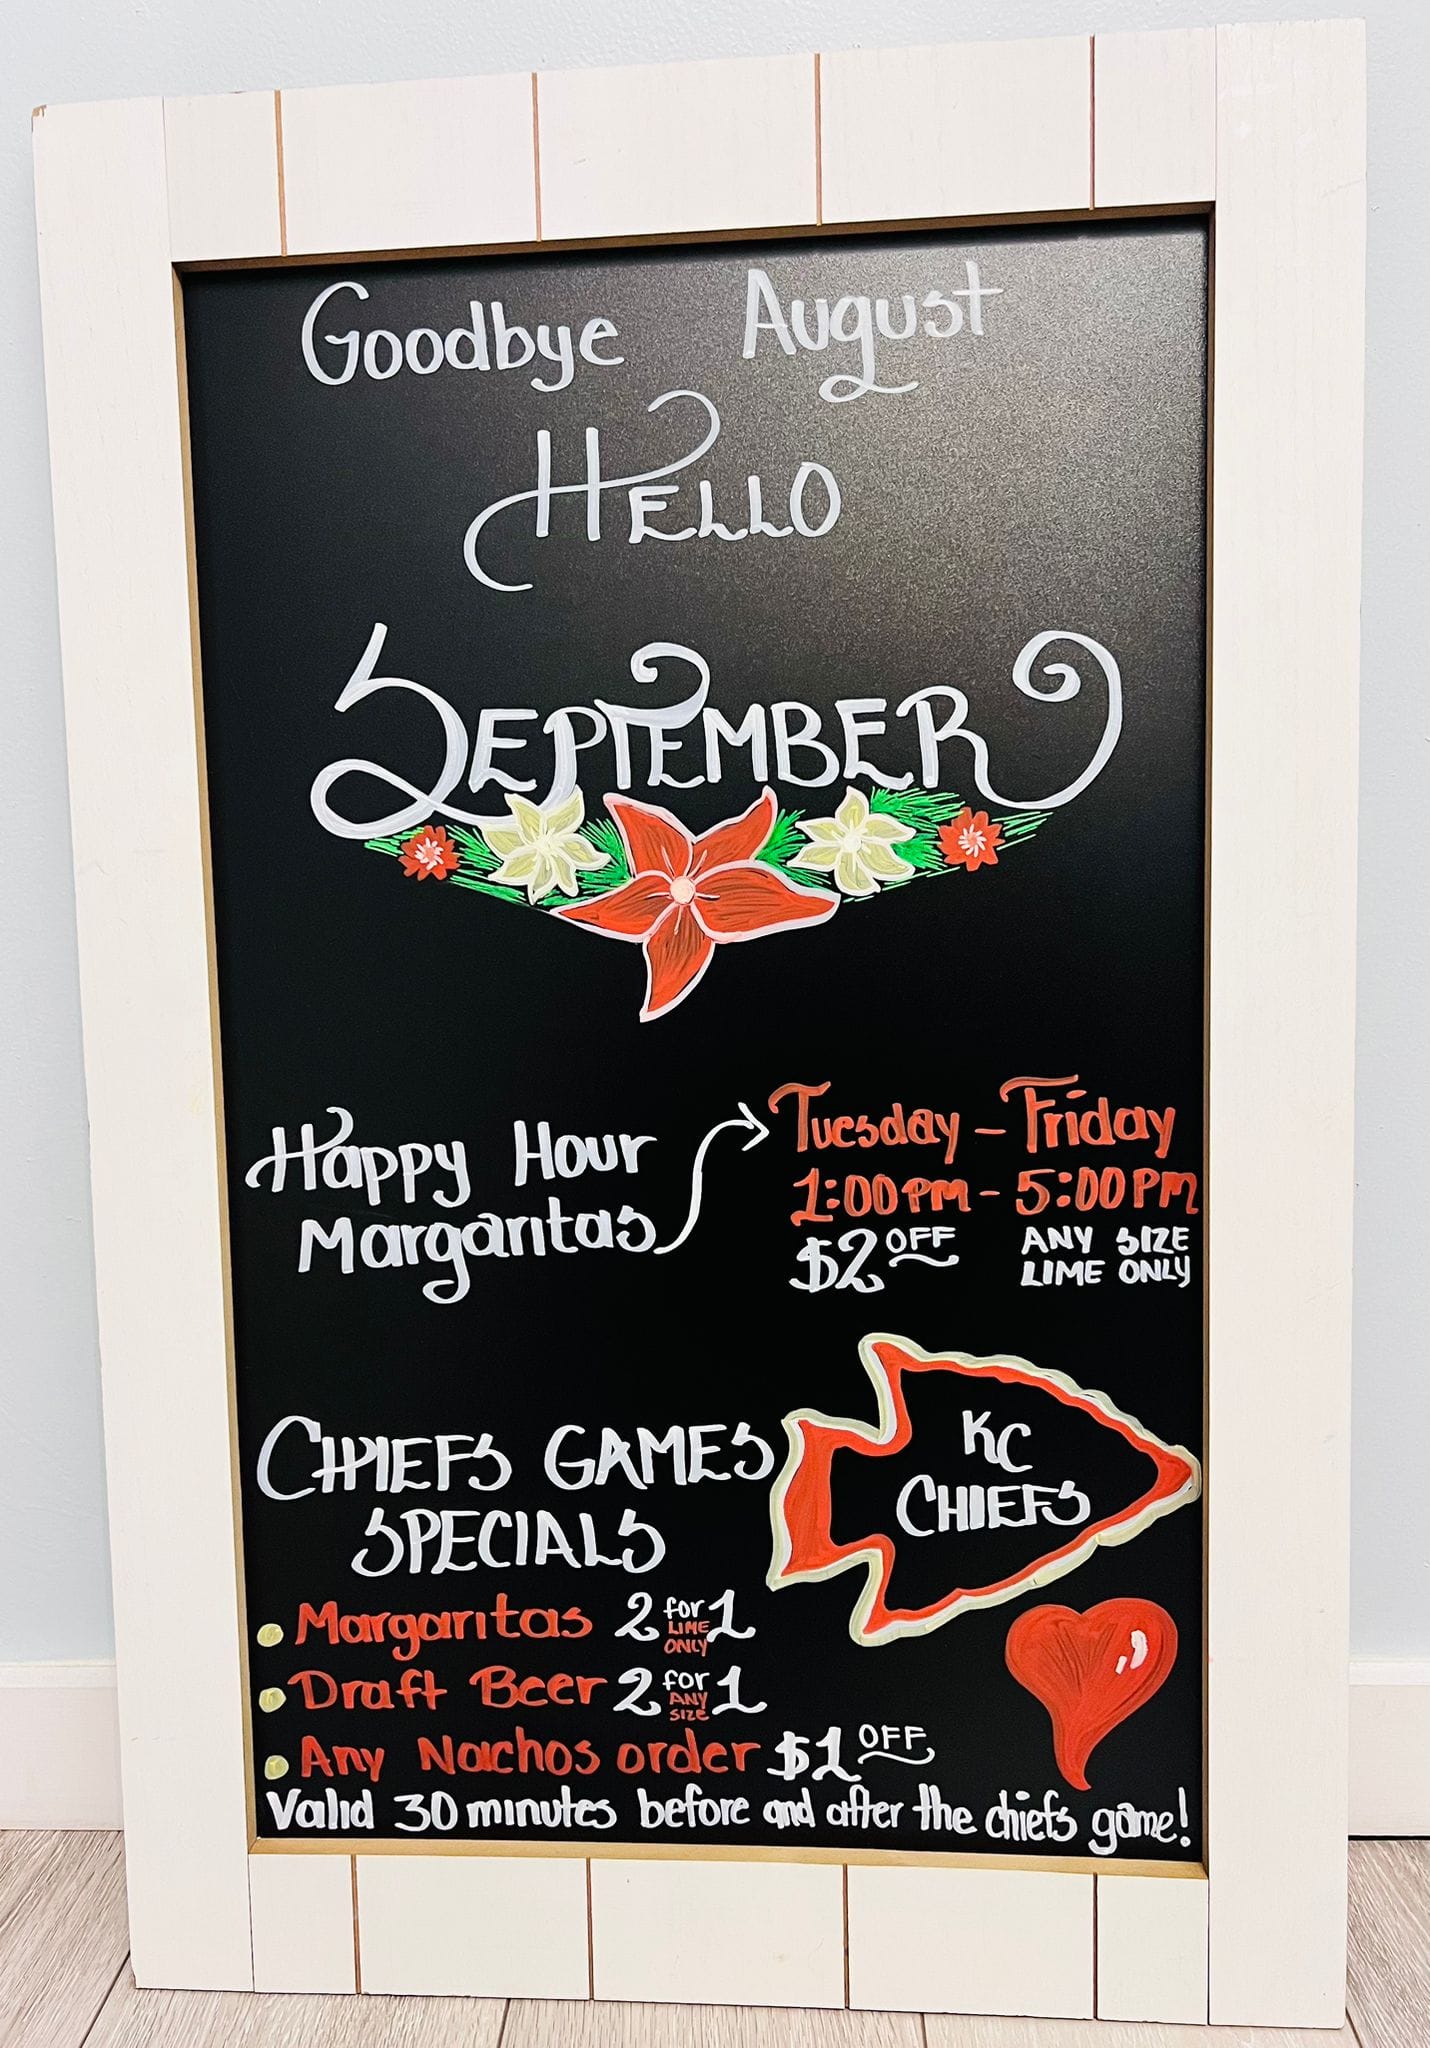 Goodbye August
HELLO
SEPTEMBER
Happy Hour
Margaritas
Tuesday - Friday
1:00PM - 5:00PM
$2 OFF ANY SIZE
LIME ONLY
CHIEFS GAMES
SPECIALS
KC
CHIEFS
Margaritas 2 for 1
LIME
ONLY
Draft Beer 2 for 1
ANY
SIZE
Any Nachos order $1 OFF
Valid 30 minutes before and after the chiefs game!